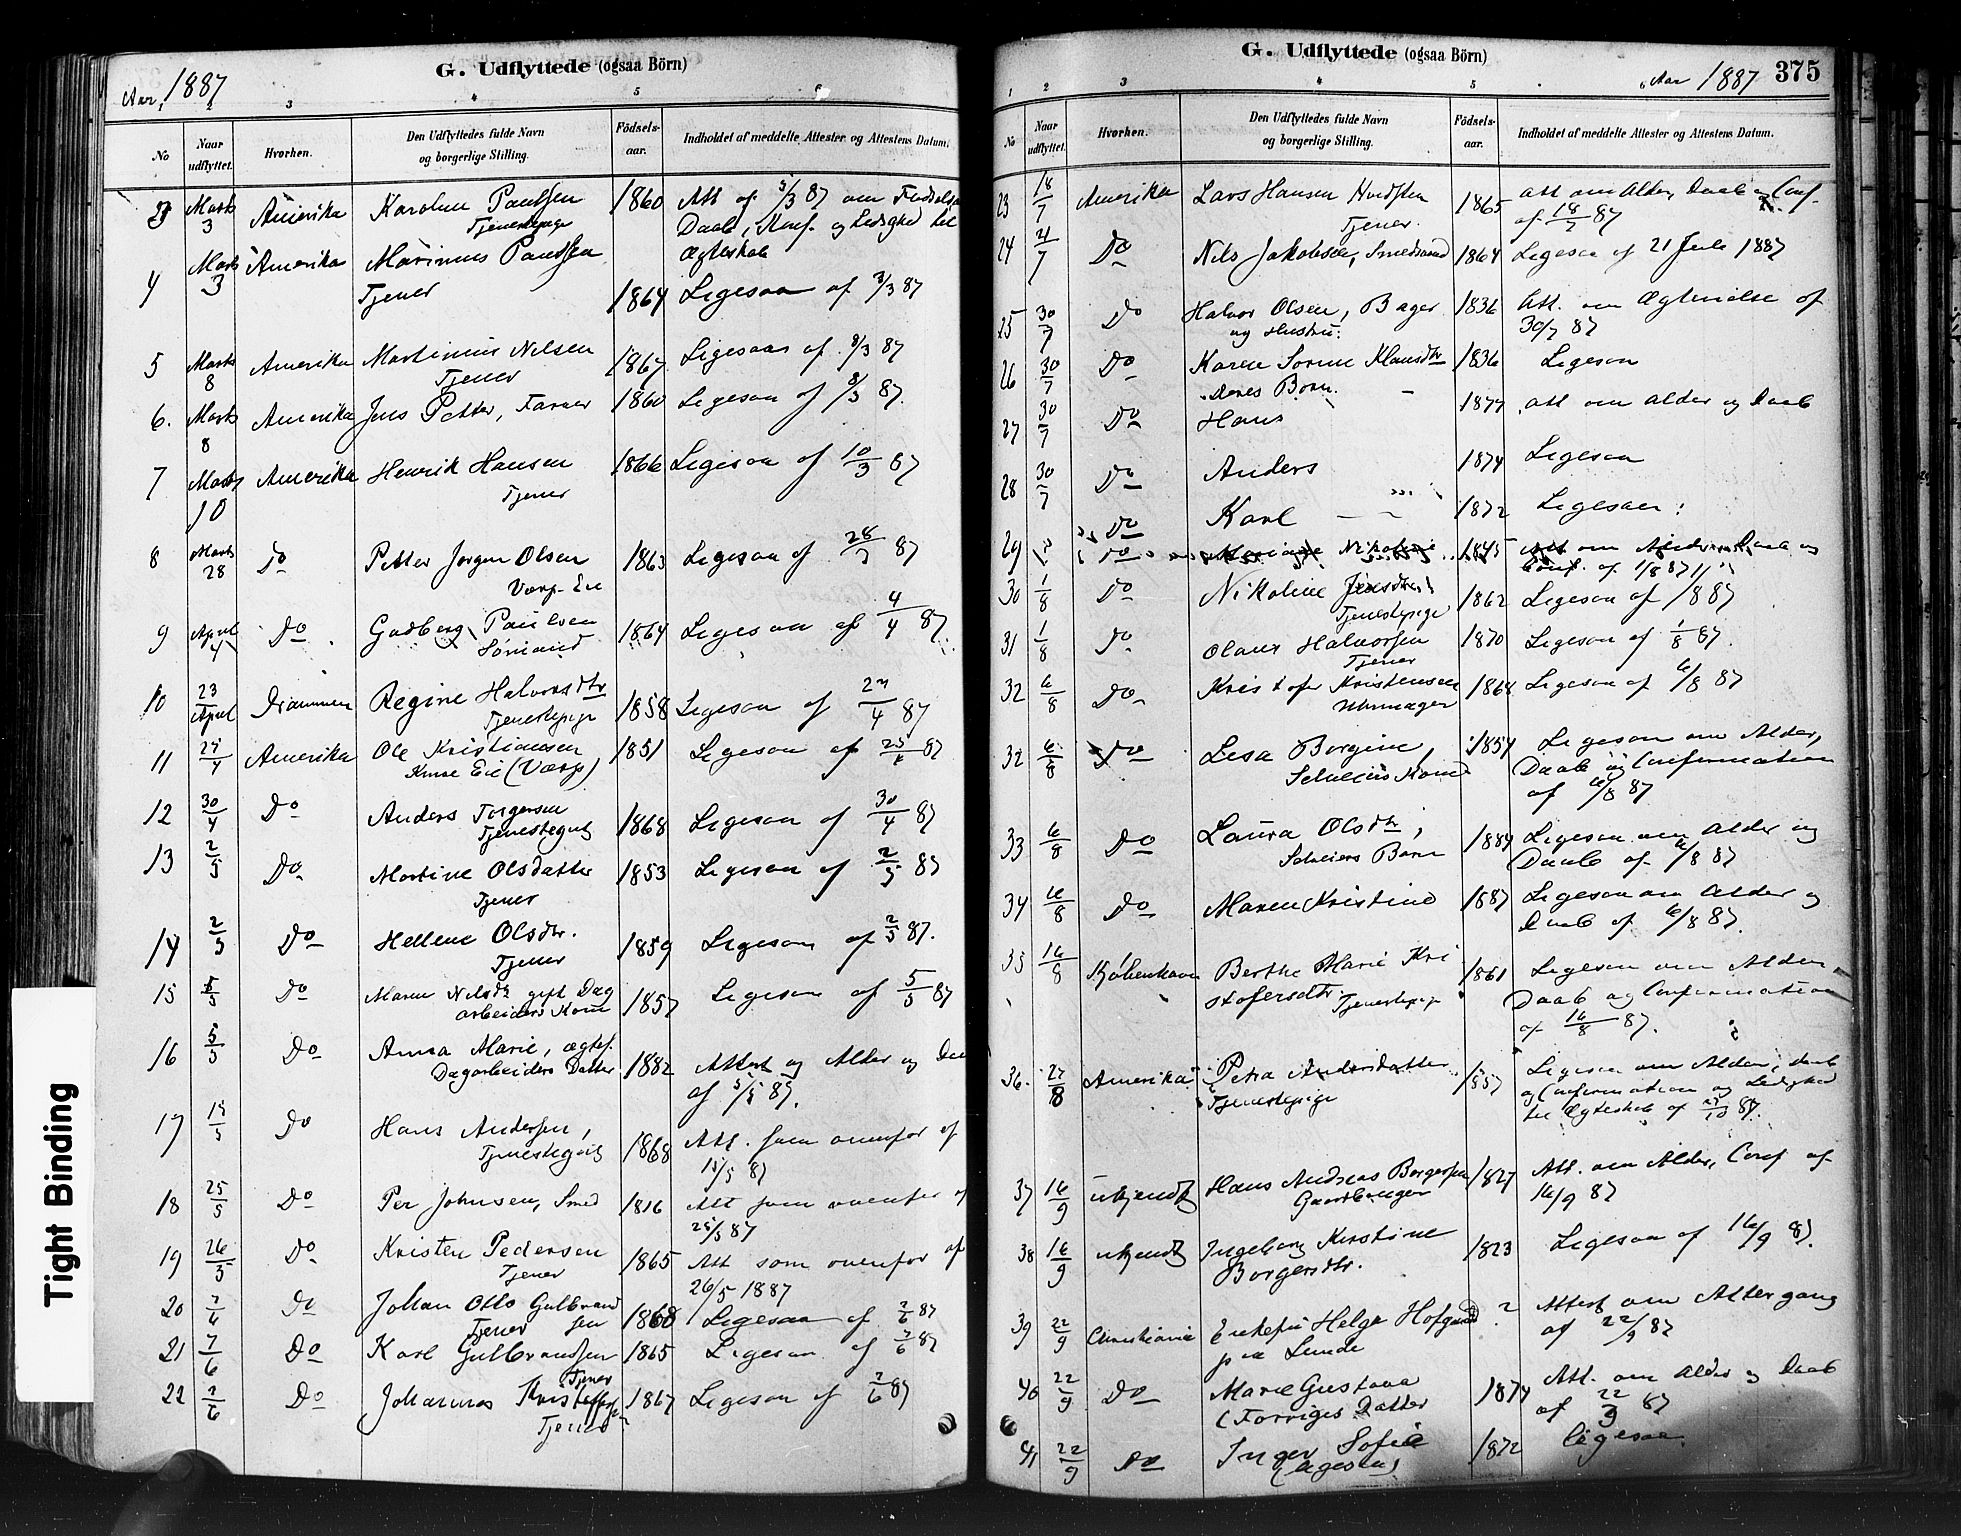 Aar 1887
G. Udflyttede (ogsaa Börn)
1 2 3 4 5 6
No
Naar udflyttet.
Hvorhen.
Den Udflyttedes fulde Navn og borgerlige Stilling.
Födsels-aar.
Indholdet af meddelte Attester og Attestens Datum.
3 Marts 3 Amerika Karoline Paulsen 1860 Att af 3/3 87 om Fødsels
Tjenestepige Daab, Konf. og Ledighed til
Ægteskab
4 Marts 3 Amerika Marinius Paulsen
Tjener 1864 Ligesaa af 3/3 87
5 Marts 8 Amerika Martinius Nilsen 1867 Ligesaa af 8/3 87
Tjener
6. Marts 8 Amerika Jens Petter, Farver 1860 Ligesaa af 8/3 87.
7 Marts 10 Amerika Henrik Hansen 1866 Ligesaa af 10/3 87
Tjener
8 Marts 28 Do Petter Jørgen Olsen 1863 Ligesaa af 28/3 87
Værp. Eie
9 April 4 Do Gudberg Paulsen 1864 Ligesaa af 4/4 87.
Sømand
10 23 April Drammen Regine Halvorsdtr 1858 Ligesaa af 23/4 87
Tjenestepige
11 25/4 Amerika Ole Kristiansen 1851 Ligesaa af 25/4 87
Eie (Værp)
12 30/4 Do Anders Torgersen 1868 Ligesaa af 30/4 87
Tjenestegut
13 2/5 Do Martine Olsdatter 1853 Ligesaa af 2/5 87
Tjener
14 2/5 Do Hellene Olsdtr. 1859 Ligesaa af 2/5 87.
Tjener
15 5/5 Do Maren Nilsdtr gift Dag 1857 Ligesaa af 5/5 87
arbeiders Kone
16 5/5 Do Anna Marie, ægtef. 1882 Attest og Alder og Daab
Dagarbeiders Datter af 5/5 87.
17 15/5 Do Hans Andersen, 1868 Att. som ovenfor af
Tjenestegut 15/5 87
18 25/5 Do Per Johnsen, Smed 1816 Att som ovenfor af
25/5 87
19 26/5 Do Kristen Pedersen 1865 Att som ovenfor af
Tjener 26/5 1887
20 7/6 Do Johan Otto Gulbrand 1868 Ligesaa af 7/6 87
Tjener sen
21 7/6 Do Karl Gulbrandsen 1865 Ligesaa af 7/6 87
Tjener
22 7/6 Do Johannes Kristoffersen 1867 Ligesaa af 7/6 87
Tjener
G. Udflyttede (ogsaa Börn)
Aar 1887 375
1 2 3 4 5
No
Naar udflyttet.
Hvorhen.
Den Udflyttedes fulde Navn og borgerlige Stilling.
Födsels-aar.
Indholdet af meddelte Attester og Attestens Datum.
23 18/7 Amerika Lars Hansen Hvidsten 1865 Att om Alder, Daab og Conf.
Tjener. af 18/7 87
24 21/7 Do Nils Jakobsen, Smedsvend 1864 Ligesaa af 21 Juli 1887
25 30/7 Do Halvor Olsen, Bager 1836 Att. om Ægtevielse af
og Hustru. 30/7 87
26 30/7 Do Karen Sorine Klausdtr 1836 Ligesaa
Deres Børn.
27 30/7 Do Hans 1877 Att om Alder og Daab
28 30/7 Do Anders 1874 Ligesaa
Do Karl 1872 Ligesaa
29 Do Nikoline 1845 Att om Alder, Daab og
Conf. af 1/8 87
30 1/8 Do Nikoline Jensdtr 1862 Ligesaa af 1/8 87
Tjenestepige
31 1/8 Do Olaus Halvorsen 1870 Ligesaa af 1/8 87.
Tjener
32 6/8 Do Kristofer Kristensen 1864 Ligesaa af 6/8 87
Uhrmager
32 6/8 Do Lisa Borgine, 1857 Ligesaa om Alder,
Kone Daab og Confirmation
af 6/8 87
33 6/8 Do Laura Olsdtr, 1884 Ligesaa om Alder og
Barn Daab af 6/8 87
34 6/8 Do Maren Kristine 1887 Ligesaa om Alder og
Daab af 6/8 87.
35 16/8 Kjøbenhavn Berthe Marie Kri 1861 Ligesaa om Alder
stofersdtr Tjenestepige Daab og Confirmation
af 16/8 87.
36. 27/8 Amerika Petra Andersdatter 1857 Ligesaa om Alder, Daab
Tjenestepige og Confirmation og Ledighed
til Ægteskab af 87.
37 16/9 ukjendt Hans Andreas Borgersen 1827 Att. om Alder, Conf af
Gaardbruger 16/9 87
38 16/9 ukjendt Ingeborg Kirstine 1823 Ligesaa af 16/9 87.
Borgersdtr.
39 22/9 Christiania Enkefru Helga Hofgaard ? Attest om Altergang
paa Lunde af 22/9 87
40 22/9 Do Marie Gustava 1874 Att. om Alder og Daab
(Forriges Datter af 22/9 87
41 22/9 Do Inger Sofie 1872 Ligesaa.
(Ligesaa)
Tight Binding